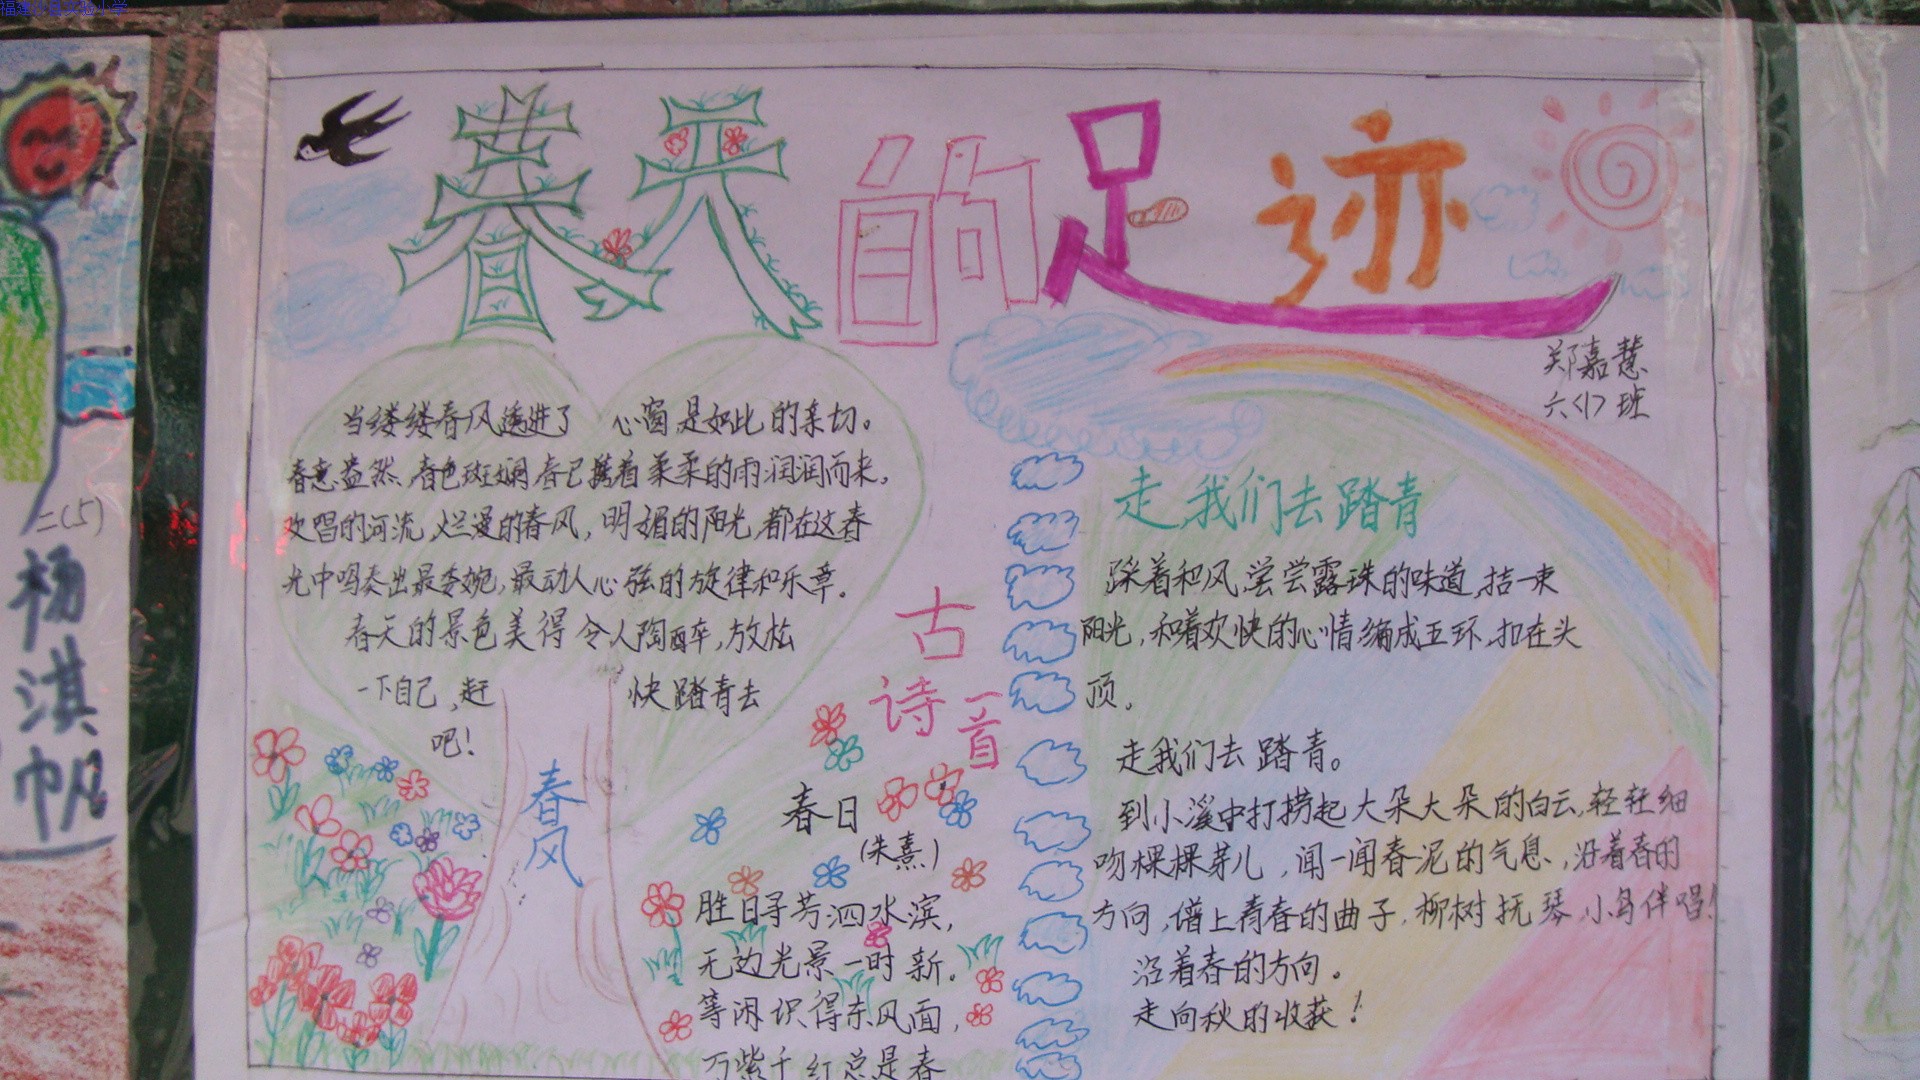 福建沙县实验小学
春天的足迹
郑嘉慧
六〈1〉班
当缕缕春风透进了 心窗,是如此的亲切。
春意盎然,春色斑斓,春已携着柔柔的雨润润而来。
欢唱的河流,烂漫的春风,明媚的阳光,都在这春
光中鸣奏出最委婉,最动人心弦的旋律和乐章。
春天的景色美得令人陶醉,放松
一下自己,赶 快踏青去
吧!
春风
古诗一首
春日
(朱熹)
胜日寻芳泗水滨,
无边光景一时新。
等闲识得东风面,
万紫千红总是春
走,我们去踏青
踩着和风,尝尝露珠的味道,拮一束
阳光,和着欢快的心情编成五环,扣在头
顶。
走我们去踏青。
到小溪中打捞起大朵大朵的白云,轻轻细
吻棵棵芽儿,闻一闻春泥的气息,沿着春的
方向,谱上青春的曲子,柳树抚琴,小鸟伴唱!
沿着春的方向。
走向秋的收获!
二(5)
杨淇帆